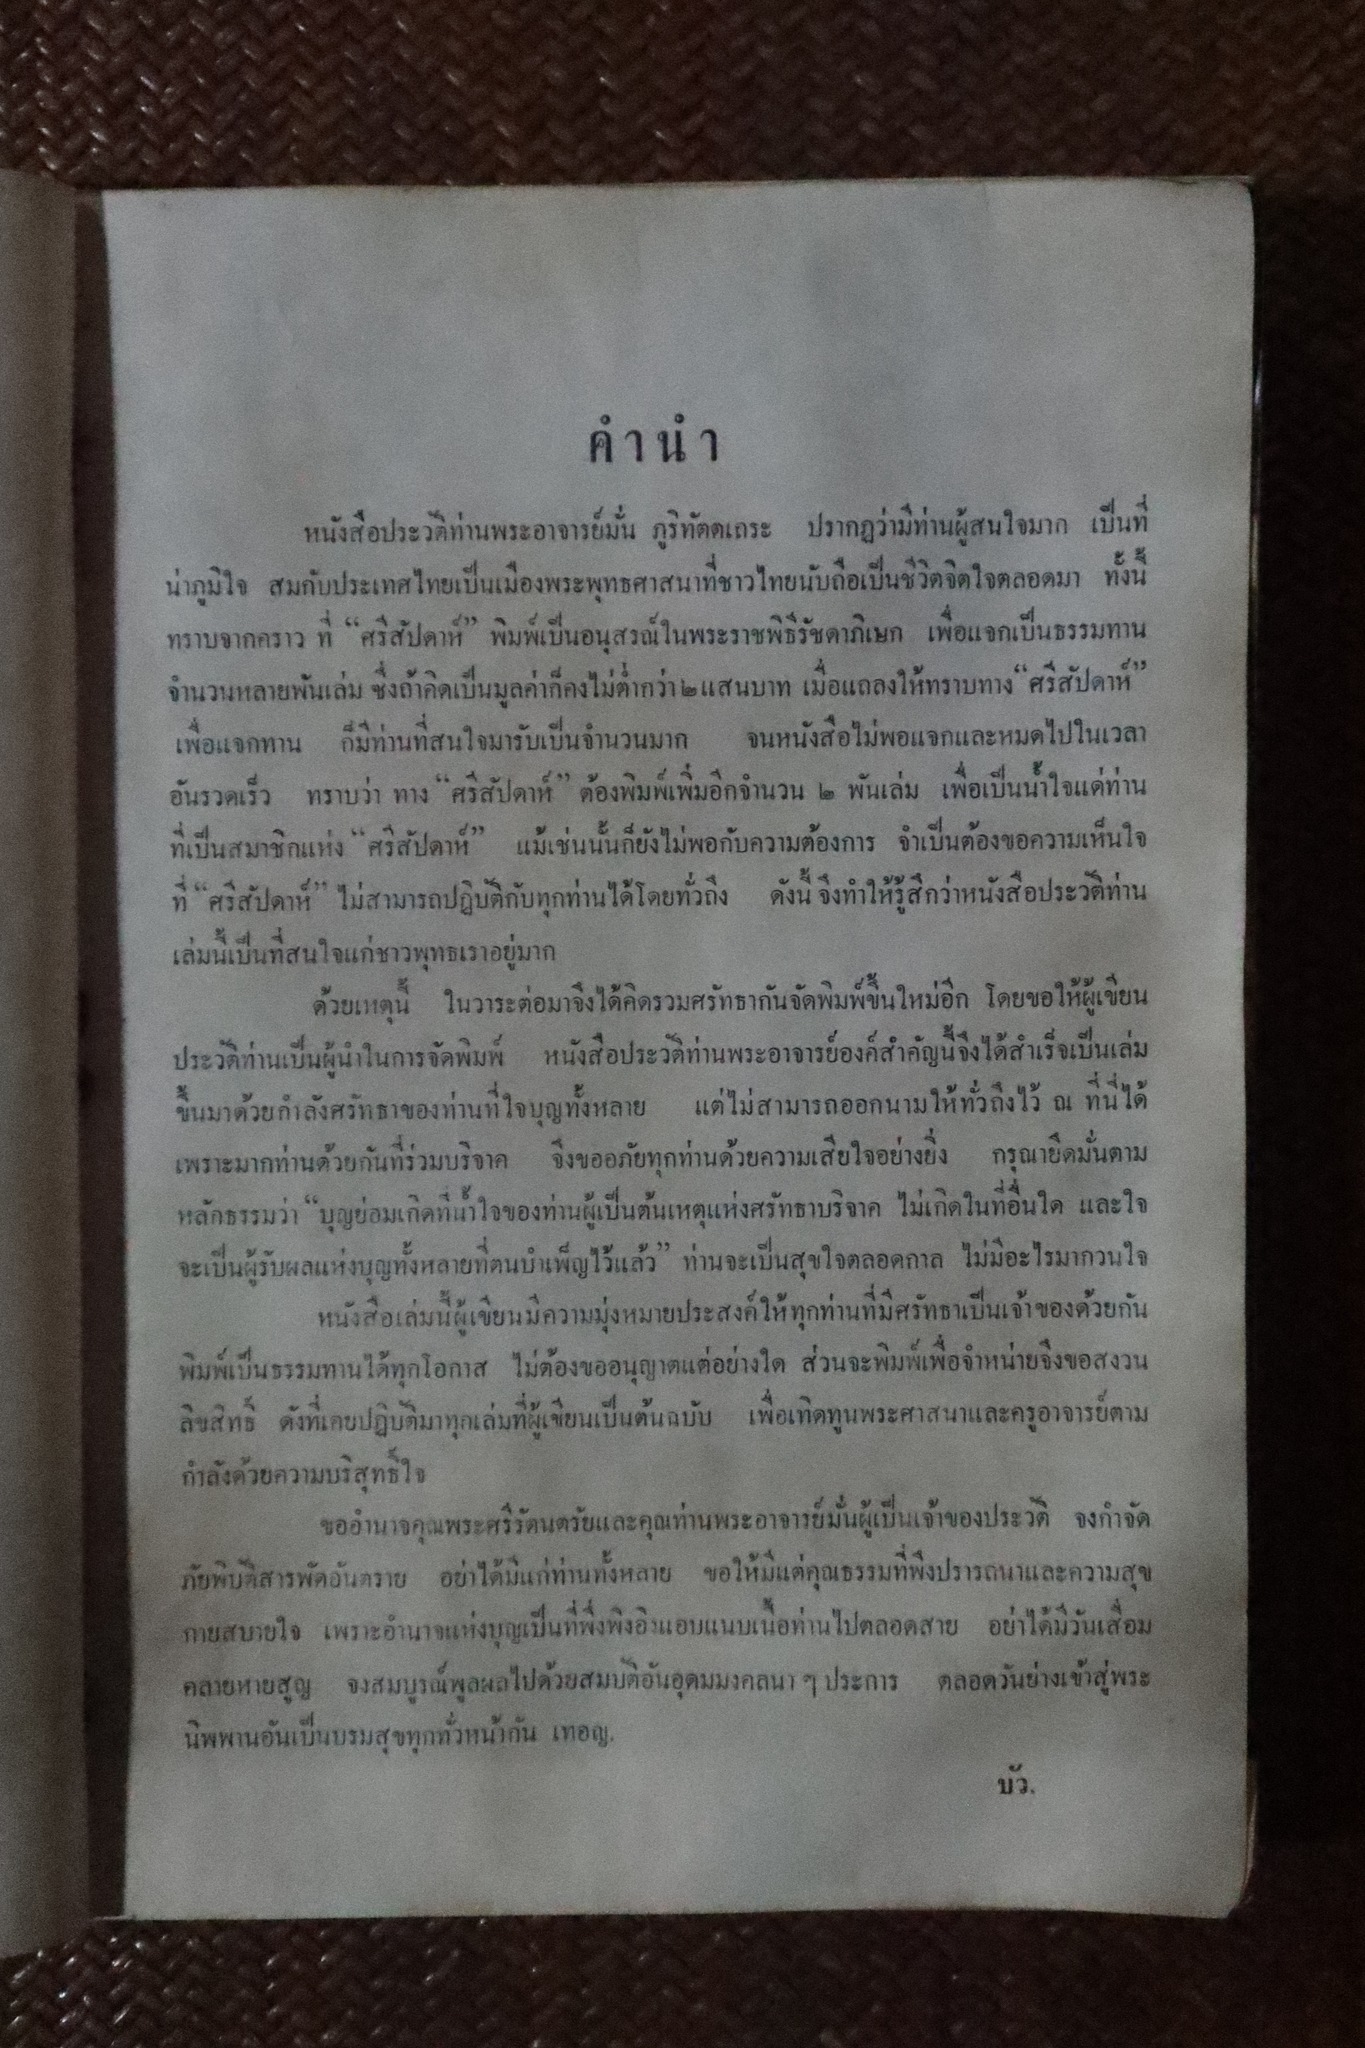 คำนำ
หนังสือประวัติท่านพระอาจารย์มั่น ภูริทัตตเถระ ปรากฏว่ามีท่านผู้สนใจมาก เป็นที่
น่าภูมิใจ สมกับประเทศไทยเป็นเมืองพระพุทธศาสนาที่ชาวไทยนับถือเป็นชีวิตจิตใจตลอดมา ทั้งนี้
ทราบจากคราว ที่ “ศรีสัปดาห์” พิมพ์เป็นอนุสรณ์ในพระราชพิธีรัชดาภิเษก เพื่อแจกเป็นธรรมทาน
จำนวนหลายพันเล่ม ซึ่งถ้าคิดเป็นมูลค่าก็คงไม่ต่ำกว่า ๒ แสนบาท เมื่อแถลงให้ทราบทาง “ศรีสัปดาห์”
เพื่อแจกทาน ก็มีท่านที่สนใจมารับเป็นจำนวนมาก จนหนังสือไม่พอแจกและหมดไปในเวลา
อันรวดเร็ว ทราบว่า ทาง “ศรีสัปดาห์” ต้องพิมพ์เพิ่มอีกจำนวน ๒ พันเล่ม เพื่อเป็นน้ำใจแด่ท่าน
ที่เป็นสมาชิกแห่ง “ศรีสัปดาห์” แม้เช่นนั้นก็ยังไม่พอกับความต้องการ จำเป็นต้องขอความเห็นใจ
ที่ “ศรีสัปดาห์” ไม่สามารถปฏิบัติกับทุกท่านได้โดยทั่วถึง ดังนี้ จึงทำให้รู้สึกว่าหนังสือประวัติท่าน
เล่มนี้เป็นที่สนใจแก่ชาวพุทธเราอยู่มาก
ด้วยเหตุนี้ ในวาระต่อมาจึงได้คิดรวมศรัทธากันจัดพิมพ์ขึ้นใหม่อีก โดยขอให้ผู้เขียน
ประวัติท่านเป็นผู้นำในการจัดพิมพ์ หนังสือประวัติท่านพระอาจารย์องค์สำคัญนี้จึงได้สำเร็จเป็นเล่ม
ขึ้นมาด้วยกำลังศรัทธาของท่านที่ใจบุญทั้งหลาย แต่ไม่สามารถออกนามให้ทั่วถึงไว้ ณ ที่นี่ได้
เพราะมากท่านด้วยกันที่ร่วมบริจาค จึงขออภัยทุกท่านด้วยความเสียใจอย่างยิ่ง กรุณายึดมั่นตาม
หลักธรรมว่า “บุญย่อมเกิดที่น้ำใจของท่านผู้เป็นต้นเหตุแห่งศรัทธาบริจาค ไม่เกิดในที่อื่นใด และใจ
จะเป็นผู้รับผลแห่งบุญทั้งหลายที่ตนบำเพ็ญไว้แล้ว” ท่านจะเป็นสุขใจตลอดกาล ไม่มีอะไรมากวนใจ
หนังสือเล่มนี้ผู้เขียนมีความมุ่งหมายประสงค์ให้ทุกท่านที่มีศรัทธาเป็นเจ้าของด้วยกัน
พิมพ์เป็นธรรมทานได้ทุกโอกาส ไม่ต้องขออนุญาตแต่อย่างใด ส่วนจะพิมพ์เพื่อจำหน่ายจึงขอสงวน
ลิขสิทธิ์ ดังที่เคยปฏิบัติมาทุกเล่มที่ผู้เขียนเป็นต้นฉบับ เพื่อเทิดทูนพระศาสนาและครูอาจารย์ตาม
กำลังด้วยความบริสุทธิ์ใจ
ขออำนาจคุณพระศรีรัตนตรัยและคุณท่านพระอาจารย์มั่นผู้เป็นเจ้าของประวัติ จงกำจัด
ภัยพิบัติสารพัดอันตราย อย่าได้มีแก่ท่านทั้งหลาย ขอให้มีแต่คุณธรรมที่พึงปรารถนาและความสุข
กายสบายใจ เพราะอำนาจแห่งบุญเป็นที่พึ่งพิงอิงแอบแนบเนื้อท่านไปตลอดสาย อย่าได้มีวันเสื่อม
คลายหายสูญ จงสมบูรณ์พูลผลไปด้วยสมบัติอันอุดมมงคลนา ๆ ประการ ตลอดวันย่างเข้าสู่พระ
นิพพานอันเป็นบรมสุขทุกทั่วหน้ากัน เทอญ.
บัว.